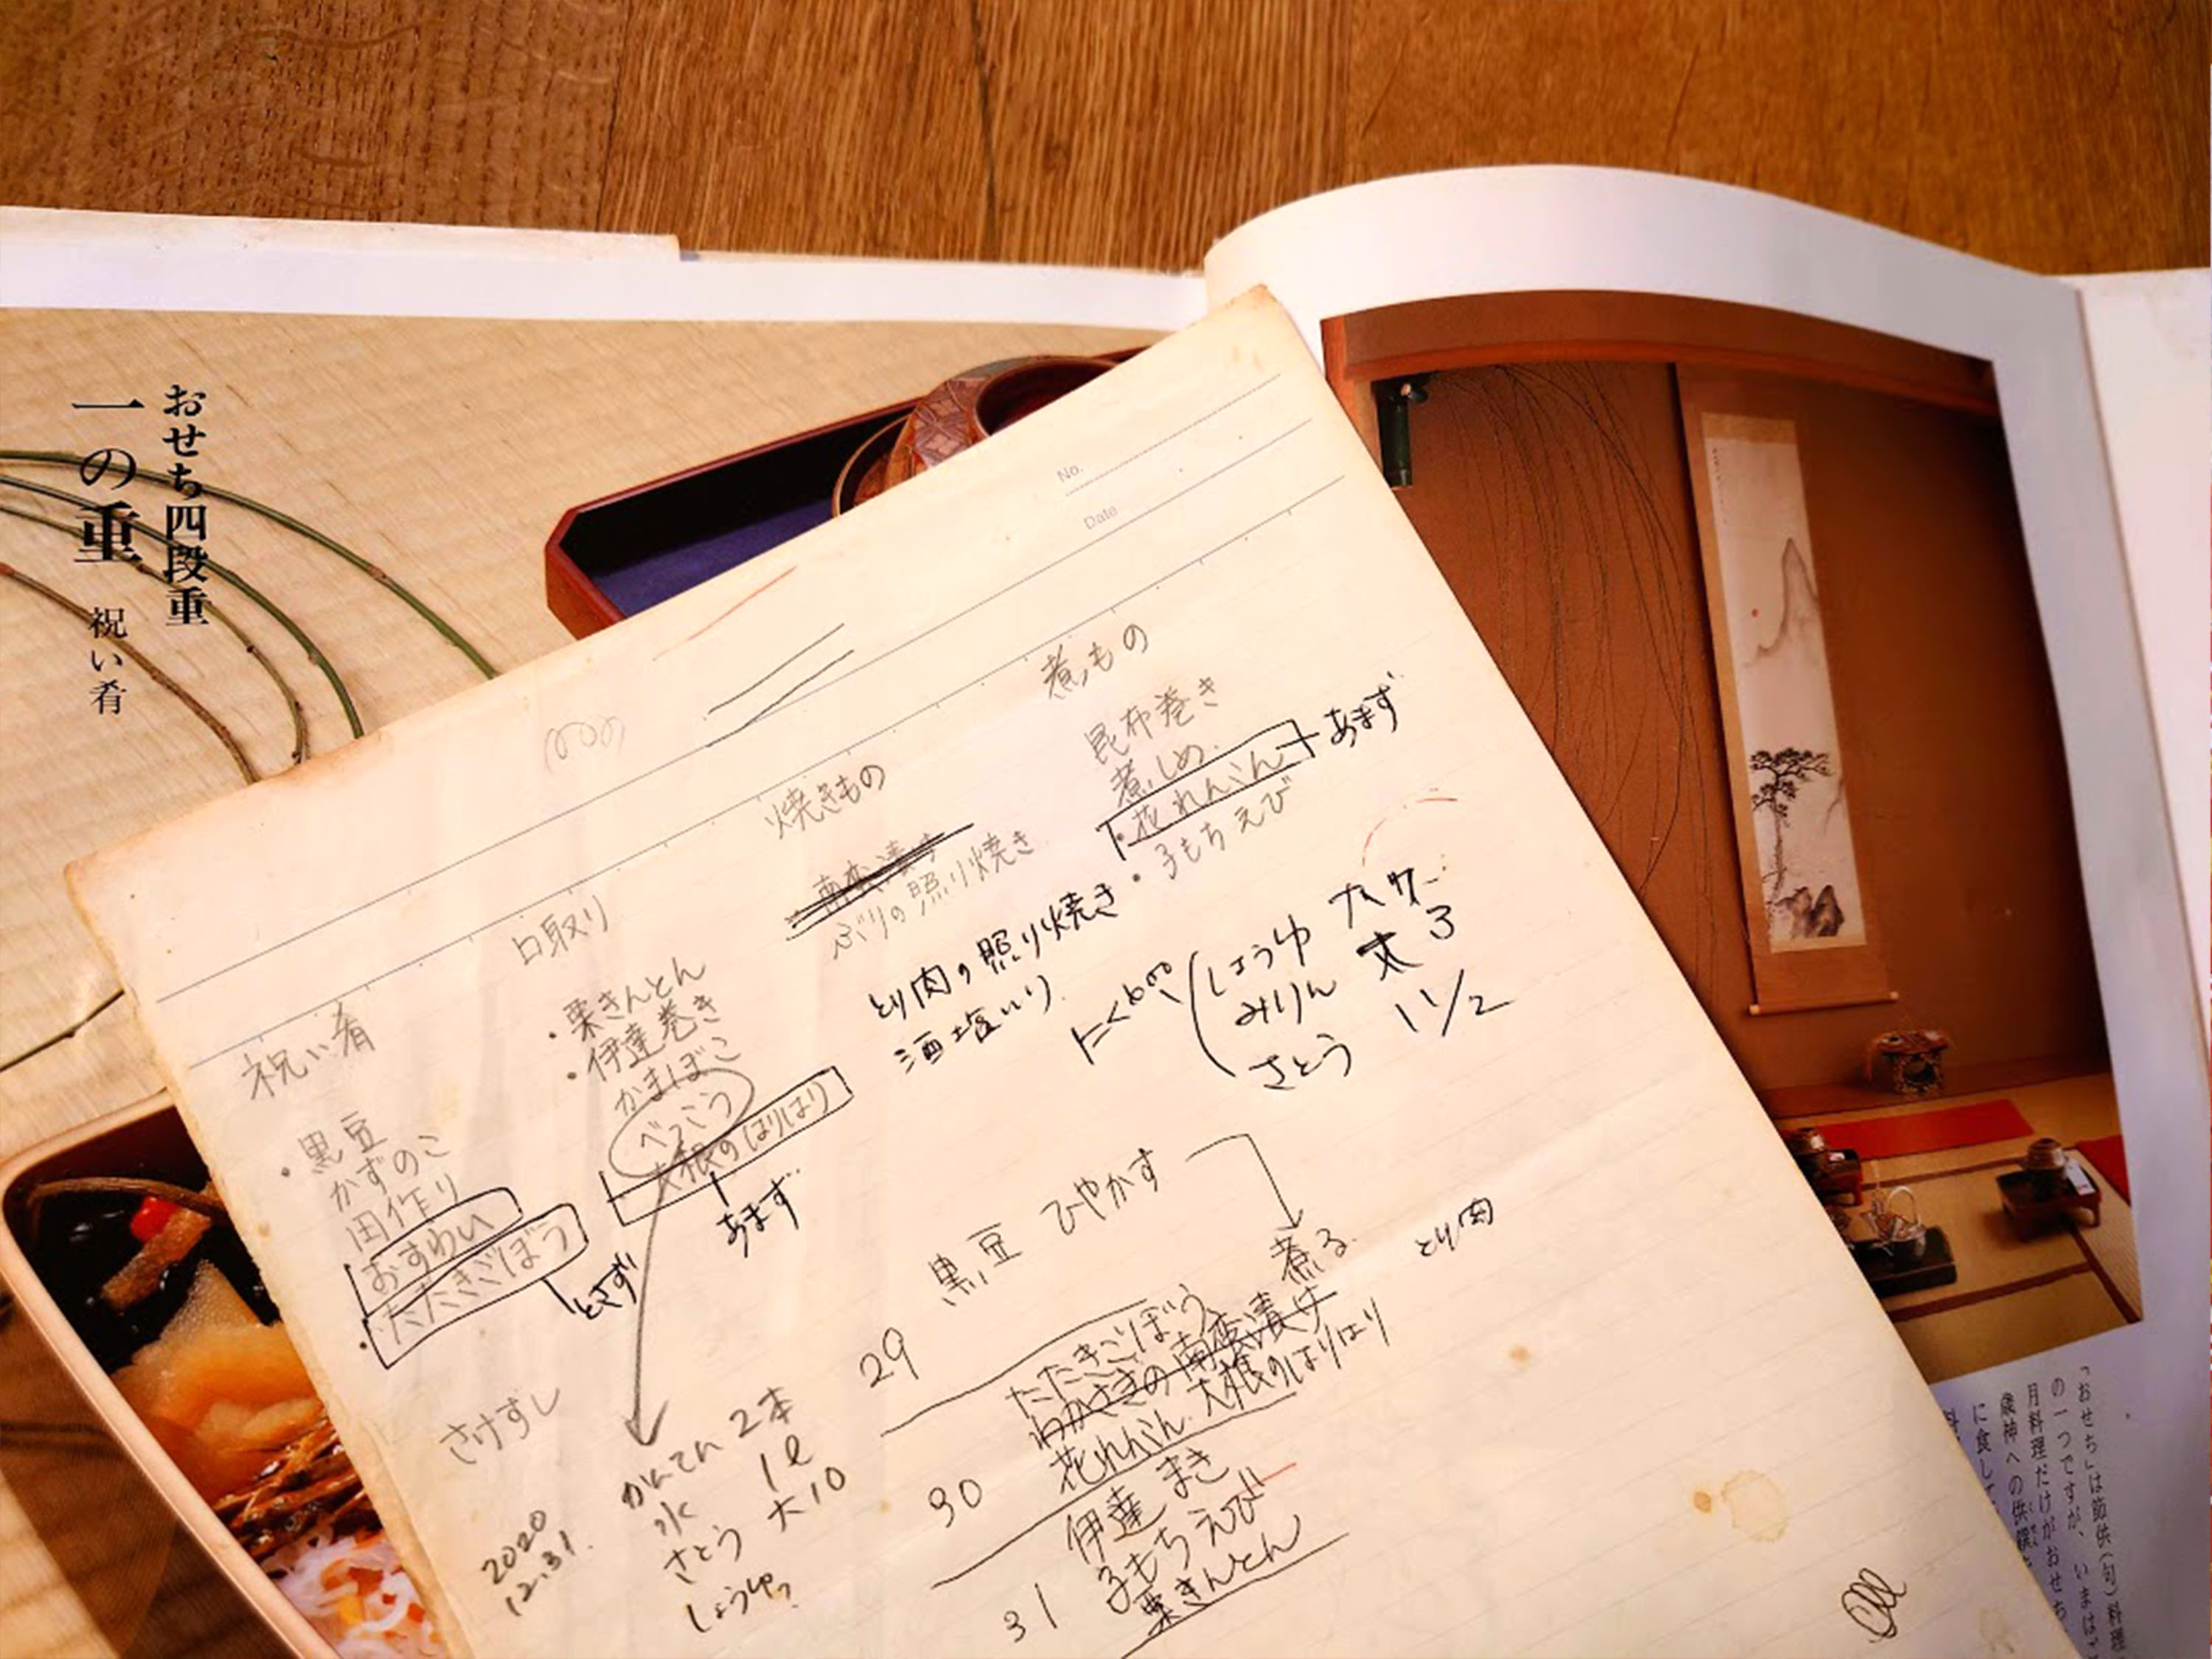 おせち四段重
一の重 祝い肴
No.
Date
煮もの
昆布巻き
煮しめ
・花れんこん
あまず
・子もちえび
焼きもの
南蛮漬け
ぶりの照り焼き
とり肉の照り焼き
酒塩いり
しょうゆ
みりん 大3
さとう 1 1/2
口取り
・栗きんとん
・伊達巻き
かまぼこ
べっこう
大根のはりはり
あまず
祝い肴
・黒豆
かずのこ
田作り
おすわい
・たたきごぼう
とさず
さけずし
2020
12.31.
かんてん 2本
水 1ℓ
さとう 大10
しょうゆ?
29 黒豆 ひやかす
煮る
とり肉
30 たたきごぼう
わかさぎの南蛮漬け
花れんこん 大根のはりはり
31 伊達まき
子もちえび
栗きんとん
「おせち」は節供(句)料理
の一つですが、いまは
月料理だけがおせち
歳神への供饌
に食して